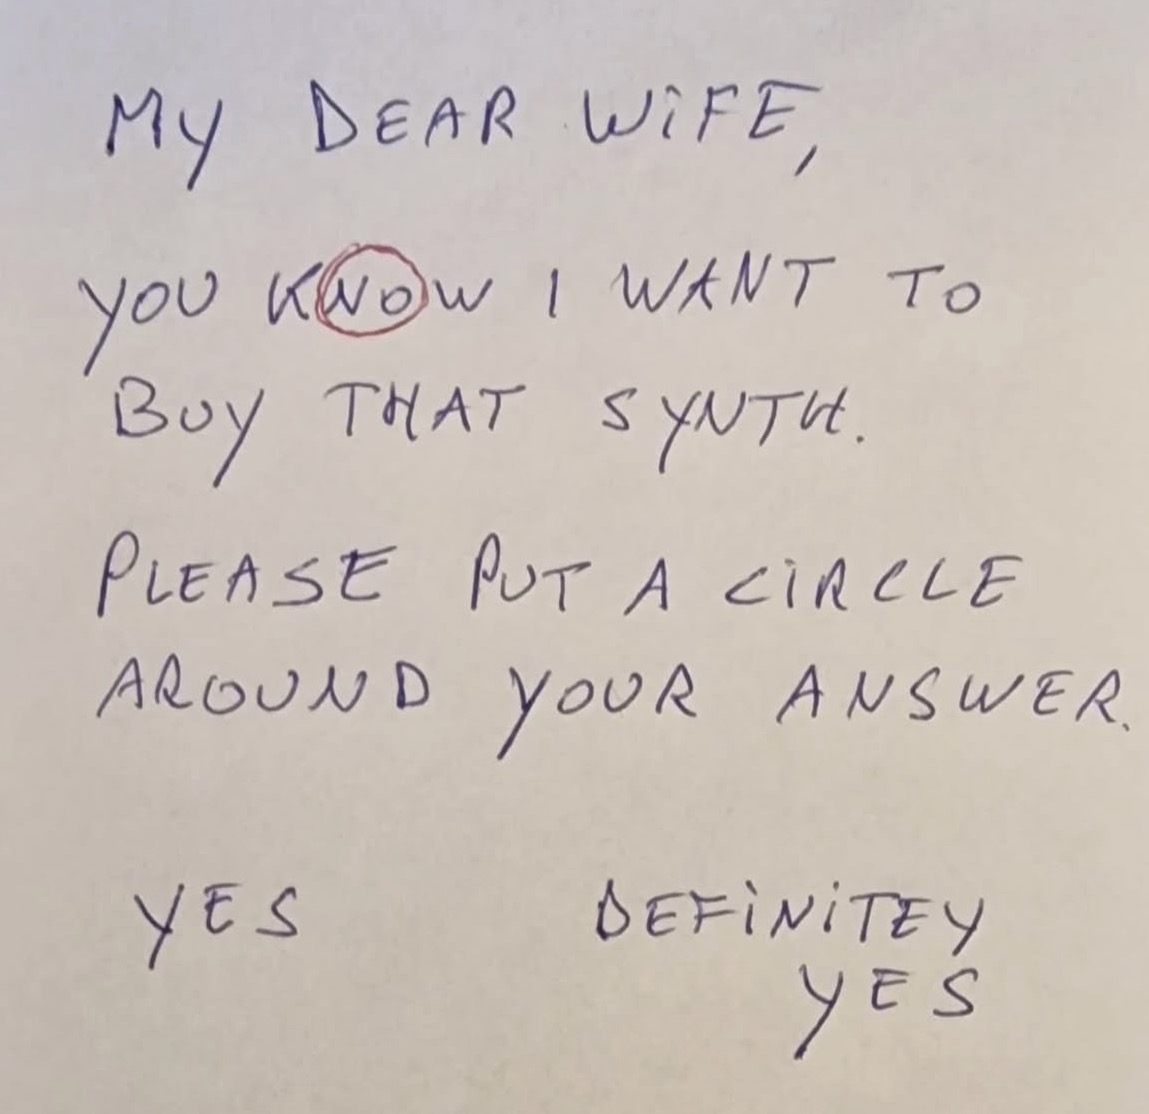 MY DEAR WIFE,
YOU KNOW I WANT TO
BUY THAT SYNTH.
PLEASE PUT A CIRCLE
AROUND YOUR ANSWER.
YES DEFINITEY
YES